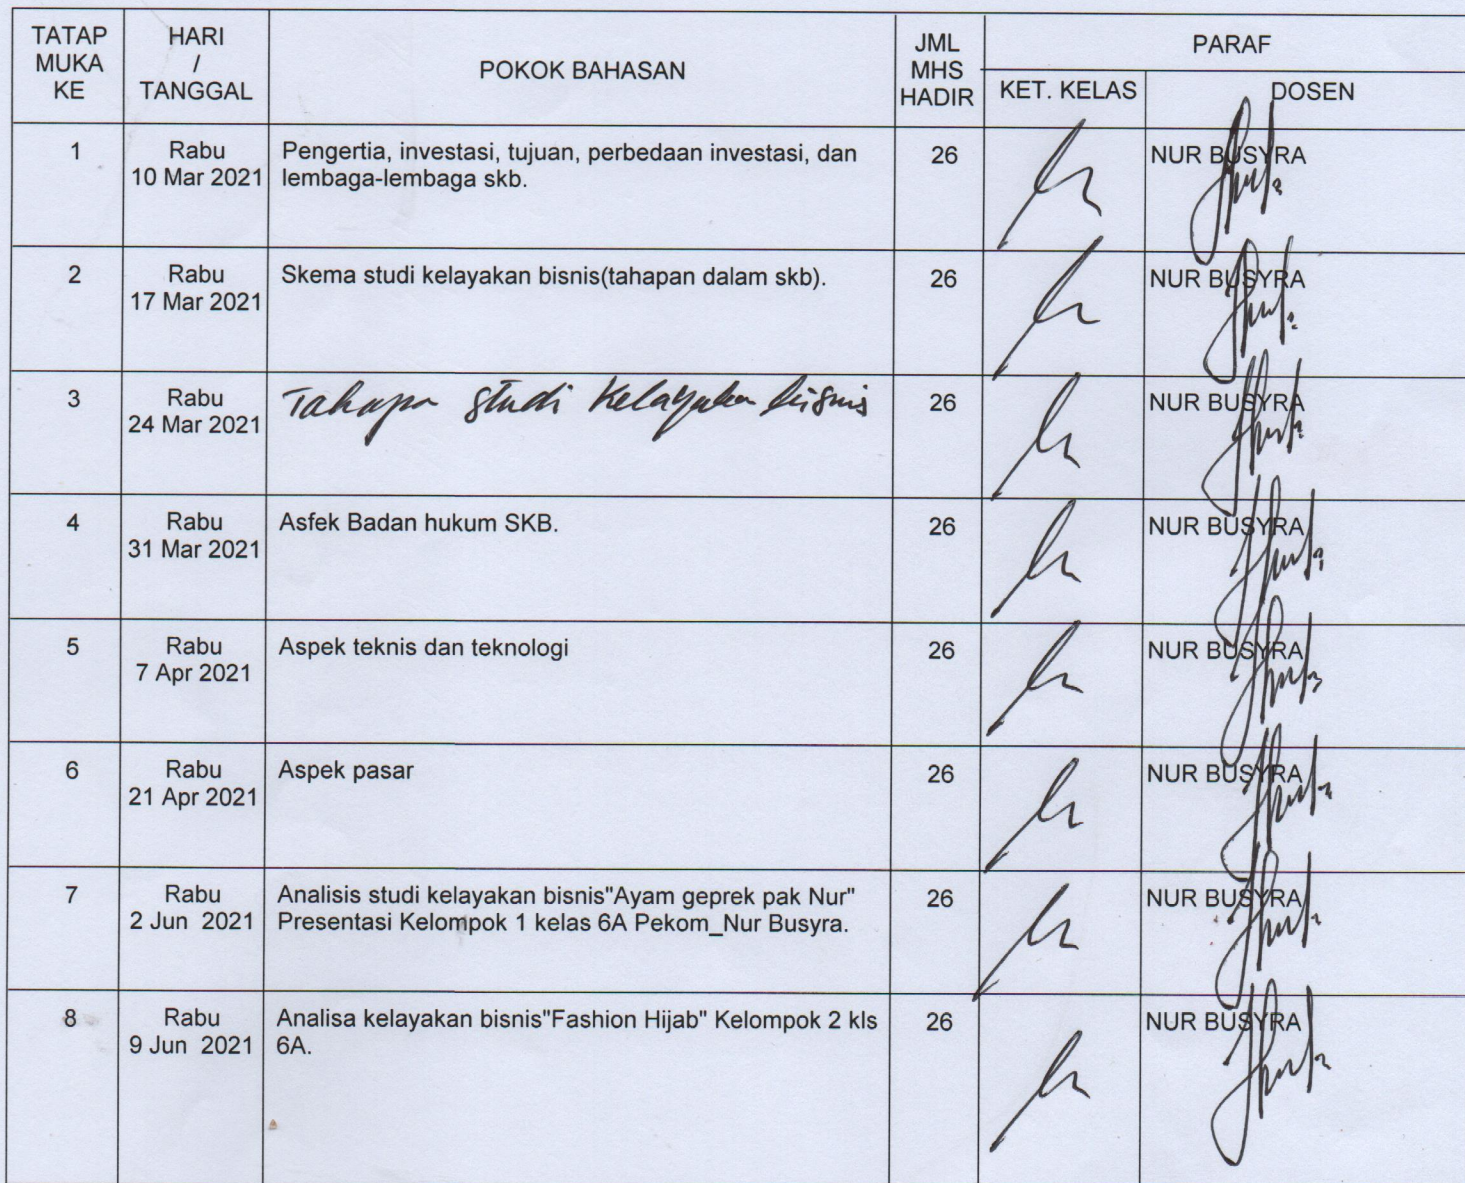 TATAP MUKA KE
HARI / TANGGAL
POKOK BAHASAN
JML MHS HADIR
PARAF
KET. KELAS
DOSEN
1
Rabu
10 Mar 2021
Pengertia, investasi, tujuan, perbedaan investasi, dan
lembaga-lembaga skb.
26
NUR BUSYRA
2
Rabu
17 Mar 2021
Skema studi kelayakan bisnis(tahapan dalam skb).
26
NUR BUSYRA
3
Rabu
24 Mar 2021
Tahapan studi Kelayakan bisnis
26
NUR BUSYRA
4
Rabu
31 Mar 2021
Asfek Badan hukum SKB.
26
NUR BUSYRA
5
Rabu
7 Apr 2021
Aspek teknis dan teknologi
26
NUR BUSYRA
6
Rabu
21 Apr 2021
Aspek pasar
26
NUR BUSYRA
7
Rabu
2 Jun 2021
Analisis studi kelayakan bisnis"Ayam geprek pak Nur"
Presentasi Kelompok 1 kelas 6A Pekom_Nur Busyra.
26
NUR BUSYRA
8
Rabu
9 Jun 2021
Analisa kelayakan bisnis"Fashion Hijab" Kelompok 2 kls
6A.
26
NUR BUSYRA